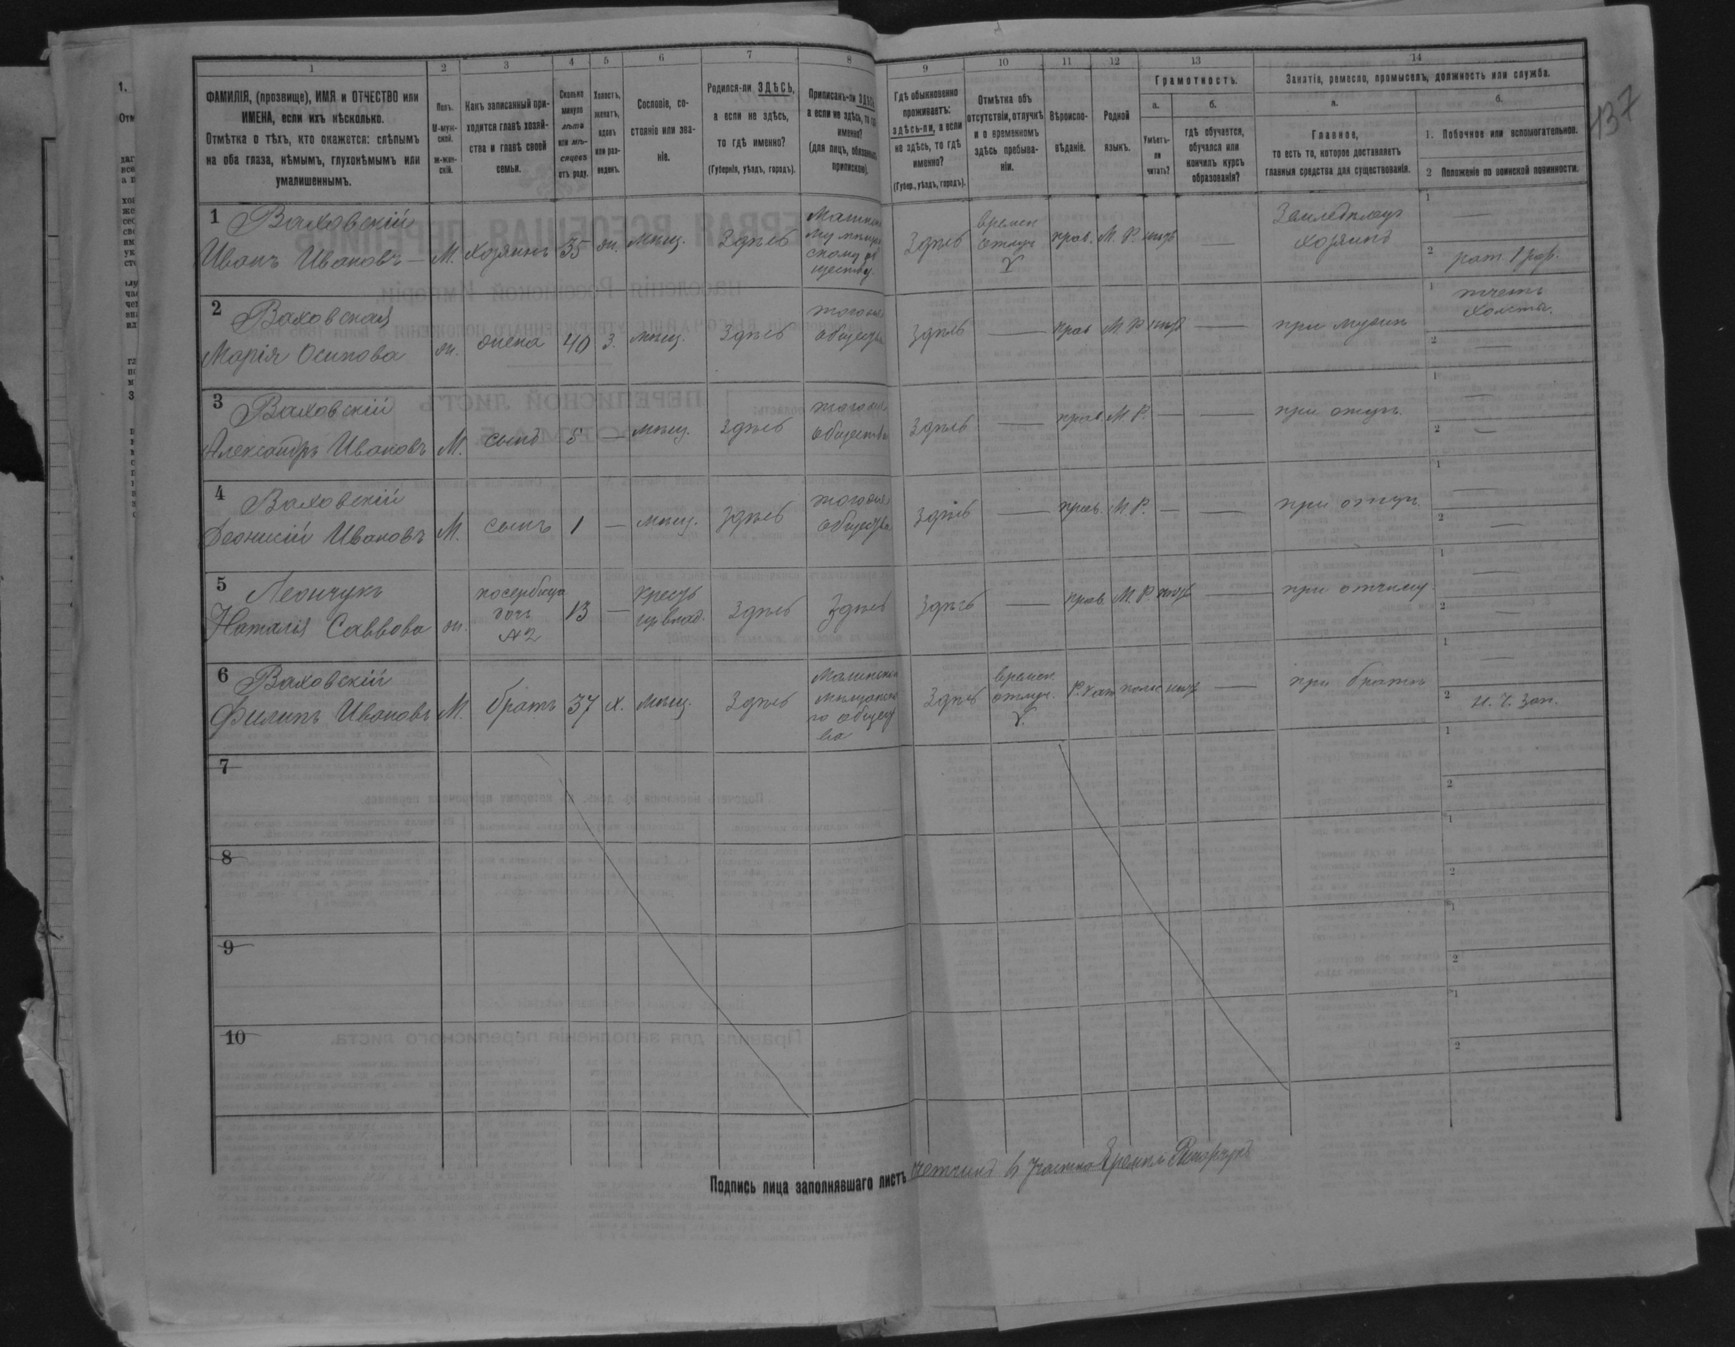 137
1 2 3 4 5 6 7 8 9 10 11 12 13 14
ФАМИЛІЯ, (прозвище), ИМЯ и ОТЧЕСТВО или
ИМЕНА, если ихъ нѣсколько.
Отмѣтка о тѣхъ, кто окажется: слѣпымъ
на оба глаза, нѣмымъ, глухонѣмымъ или
умалишеннымъ.
Полъ.
М-муж-
ской.
ж-жен-
скій.
Какъ записанный при-
ходится главѣ хозяй-
ства и главѣ своей
семьи.
Сколько
минуло
лѣтъ
или мѣ-
сяцевъ
отъ роду.
Холостъ,
женатъ,
вдовъ
или раз-
веденъ.
Сословіе, со-
стояніе или зва-
ніе.
Родился-ли ЗДѢСЬ,
а если не здѣсь,
то гдѣ именно?
(Губернія, уѣздъ, городъ).
Приписанъ-ли ЗДѢСЬ,
а если не здѣсь, то гдѣ
именно?
(для лицъ, обязанныхъ
припискою).
Гдѣ обыкновенно
проживаетъ:
здѣсь-ли, а если
не здѣсь, то гдѣ
именно?
(Губер., уѣздъ, городъ).
Отмѣтка объ
отсутствіи, отлучкѣ
и о временномъ
здѣсь пребыва-
ніи.
Вѣроиспо-
вѣданіе.
Родной
языкъ.
Грамотность.
а.
Умѣетъ-
ли
читать?
б.
гдѣ обучается,
обучался или
кончилъ курсъ
образованія?
Занятія, ремесло, промыселъ, должность или служба.
а.
Главное,
то есть то, которое доставляетъ
главныя средства для существованія.
б.
1. Побочное или вспомогательное.
2 Положеніе по воинской повинности.
1 Ваховскій
Иванъ Ивановъ М. хозяинъ 35 ж. мѣщ. Здѣсь
Здѣсь
времен.
отлуч.
прав. М. Р. —
хозяинъ
1 —
2 рат. 1 раз.
2 Ваховская
Марія Осипова ж. жена 40 З. мѣщ. Здѣсь
тогоже
общества
Здѣсь — прав М. Р. —
при мужѣ
1
холста.
2 —
3 Ваховскій
Александръ Ивановъ М. сынъ 5 — мѣщ. Здѣсь
тогоже
общества
Здѣсь — прав М. Р. — —
при отцѣ.
1 —
2 —
4 Ваховскій
Деонисій Ивановъ М. сынъ 1 — мѣщ. Здѣсь
тогоже
общества
Здѣсь — прав. М. Р. — —
при отцѣ.
1 —
2 —
5 Леончукъ
Наталія Саввова ж.
дочь
№ 2
13 —
Здѣсь Здѣсь Здѣсь — прав. М. Р. —
при отчиму.
1 —
2 —
6 Ваховскій
Филипъ Ивановъ М. братъ 37 х. мѣщ. Здѣсь
Здѣсь
времен.
отлуч.
Р. кат. —
при братѣ
1 —
2 н. ч. зап.
7
1
2
8
1
2
9
1
2
10
1
2
Подпись лица заполнявшаго листъ